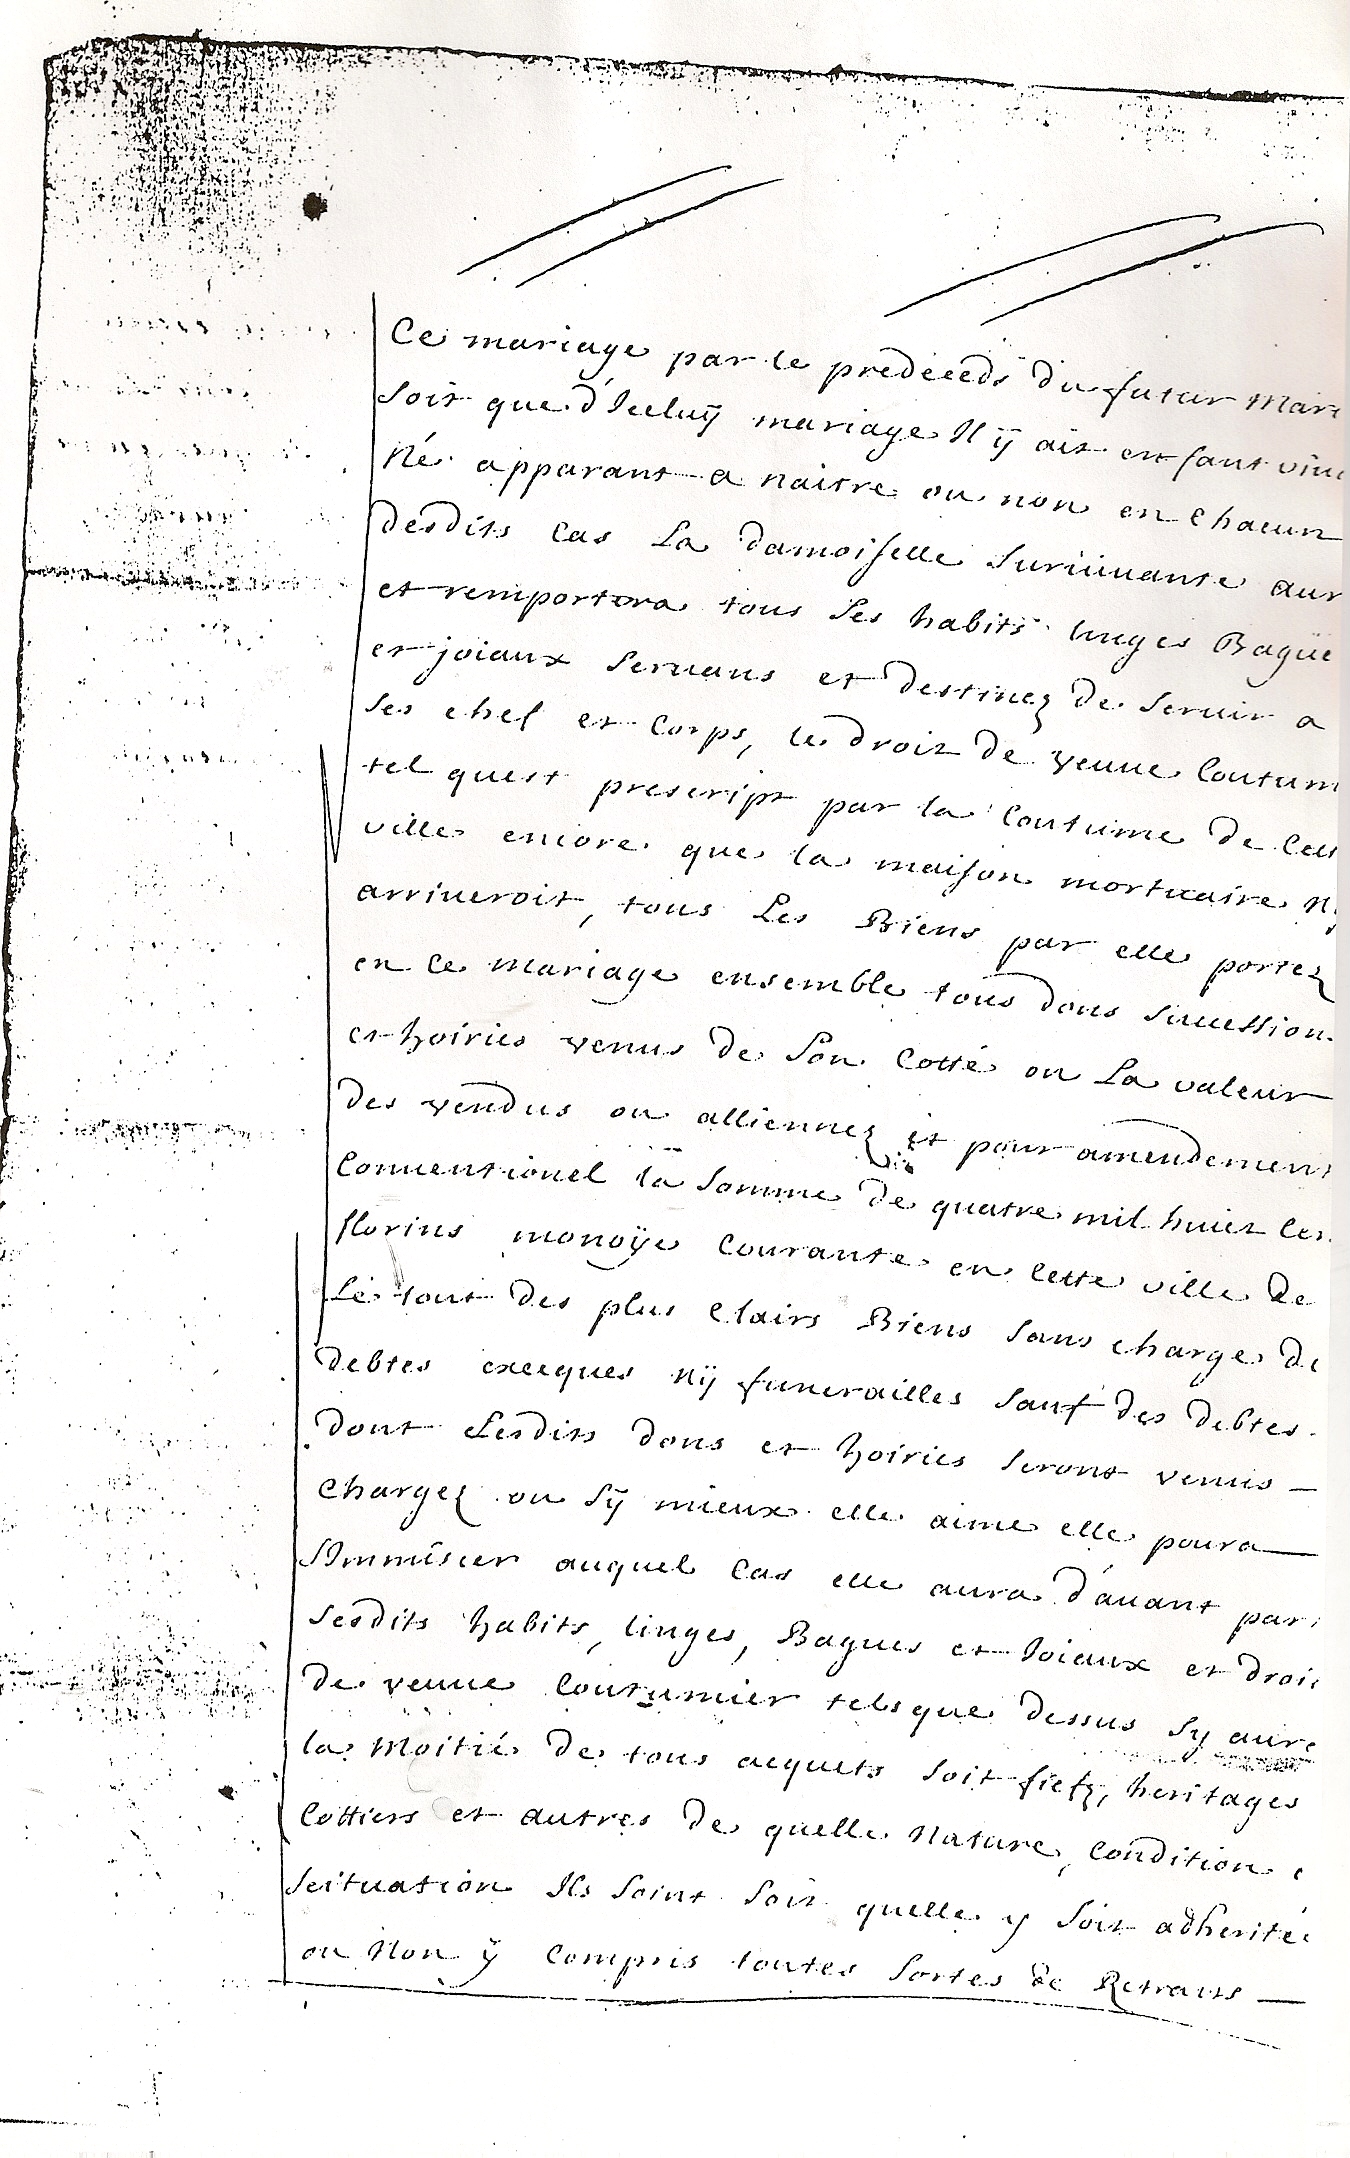 Ce mariage par le predeceds du futur Mari
Soit que d'Iceluÿ mariage Il ÿ ait enfant viv
Né apparant a naitre ou non en chacun
desdits Cas La damoiselle Suruiuante aur
et remportera tous Ses habits linges Bague
et joiaux Seruans et destinez de Seruir a
Ses chef et Corps, le droit de veuue Coutum
tel quest prescript par la Coutume de Cett
ville encore que la maison mortuaire Ny
arriueroit, tous Les Biens par elle portez
en Ce Mariage ensemble tous dons Succession
et hoiries venus de Son Cotté ou La valeur
des vendus ou alliennez et pour amendement
Conuentionel la Somme de quatre mil huict Cen
florins monoÿe Courante en Cette ville de
Le tout des plus Clairs Biens Sans charge de
debtes exceques nÿ funerailles Sauf des debtes
dont Lesdits dons et hoiries Seront venus —
Chargez ou Sÿ mieux elle aime elle poura —
S'Immiscer auquel Cas elle aura d'auant par
Sesdits habits, linges, Bagues et Joiaux et droit
de veuue Coutumier tels que dessus Sy aura
la Moitié de tous acquets Soit fiefz, heritages
Cottiers et autres de quelle Nature, Condition e
Scituation Ils Soint Soit quelle y Soit adheritée
ou Non ÿ Compris toutes Sortes de Retraits —